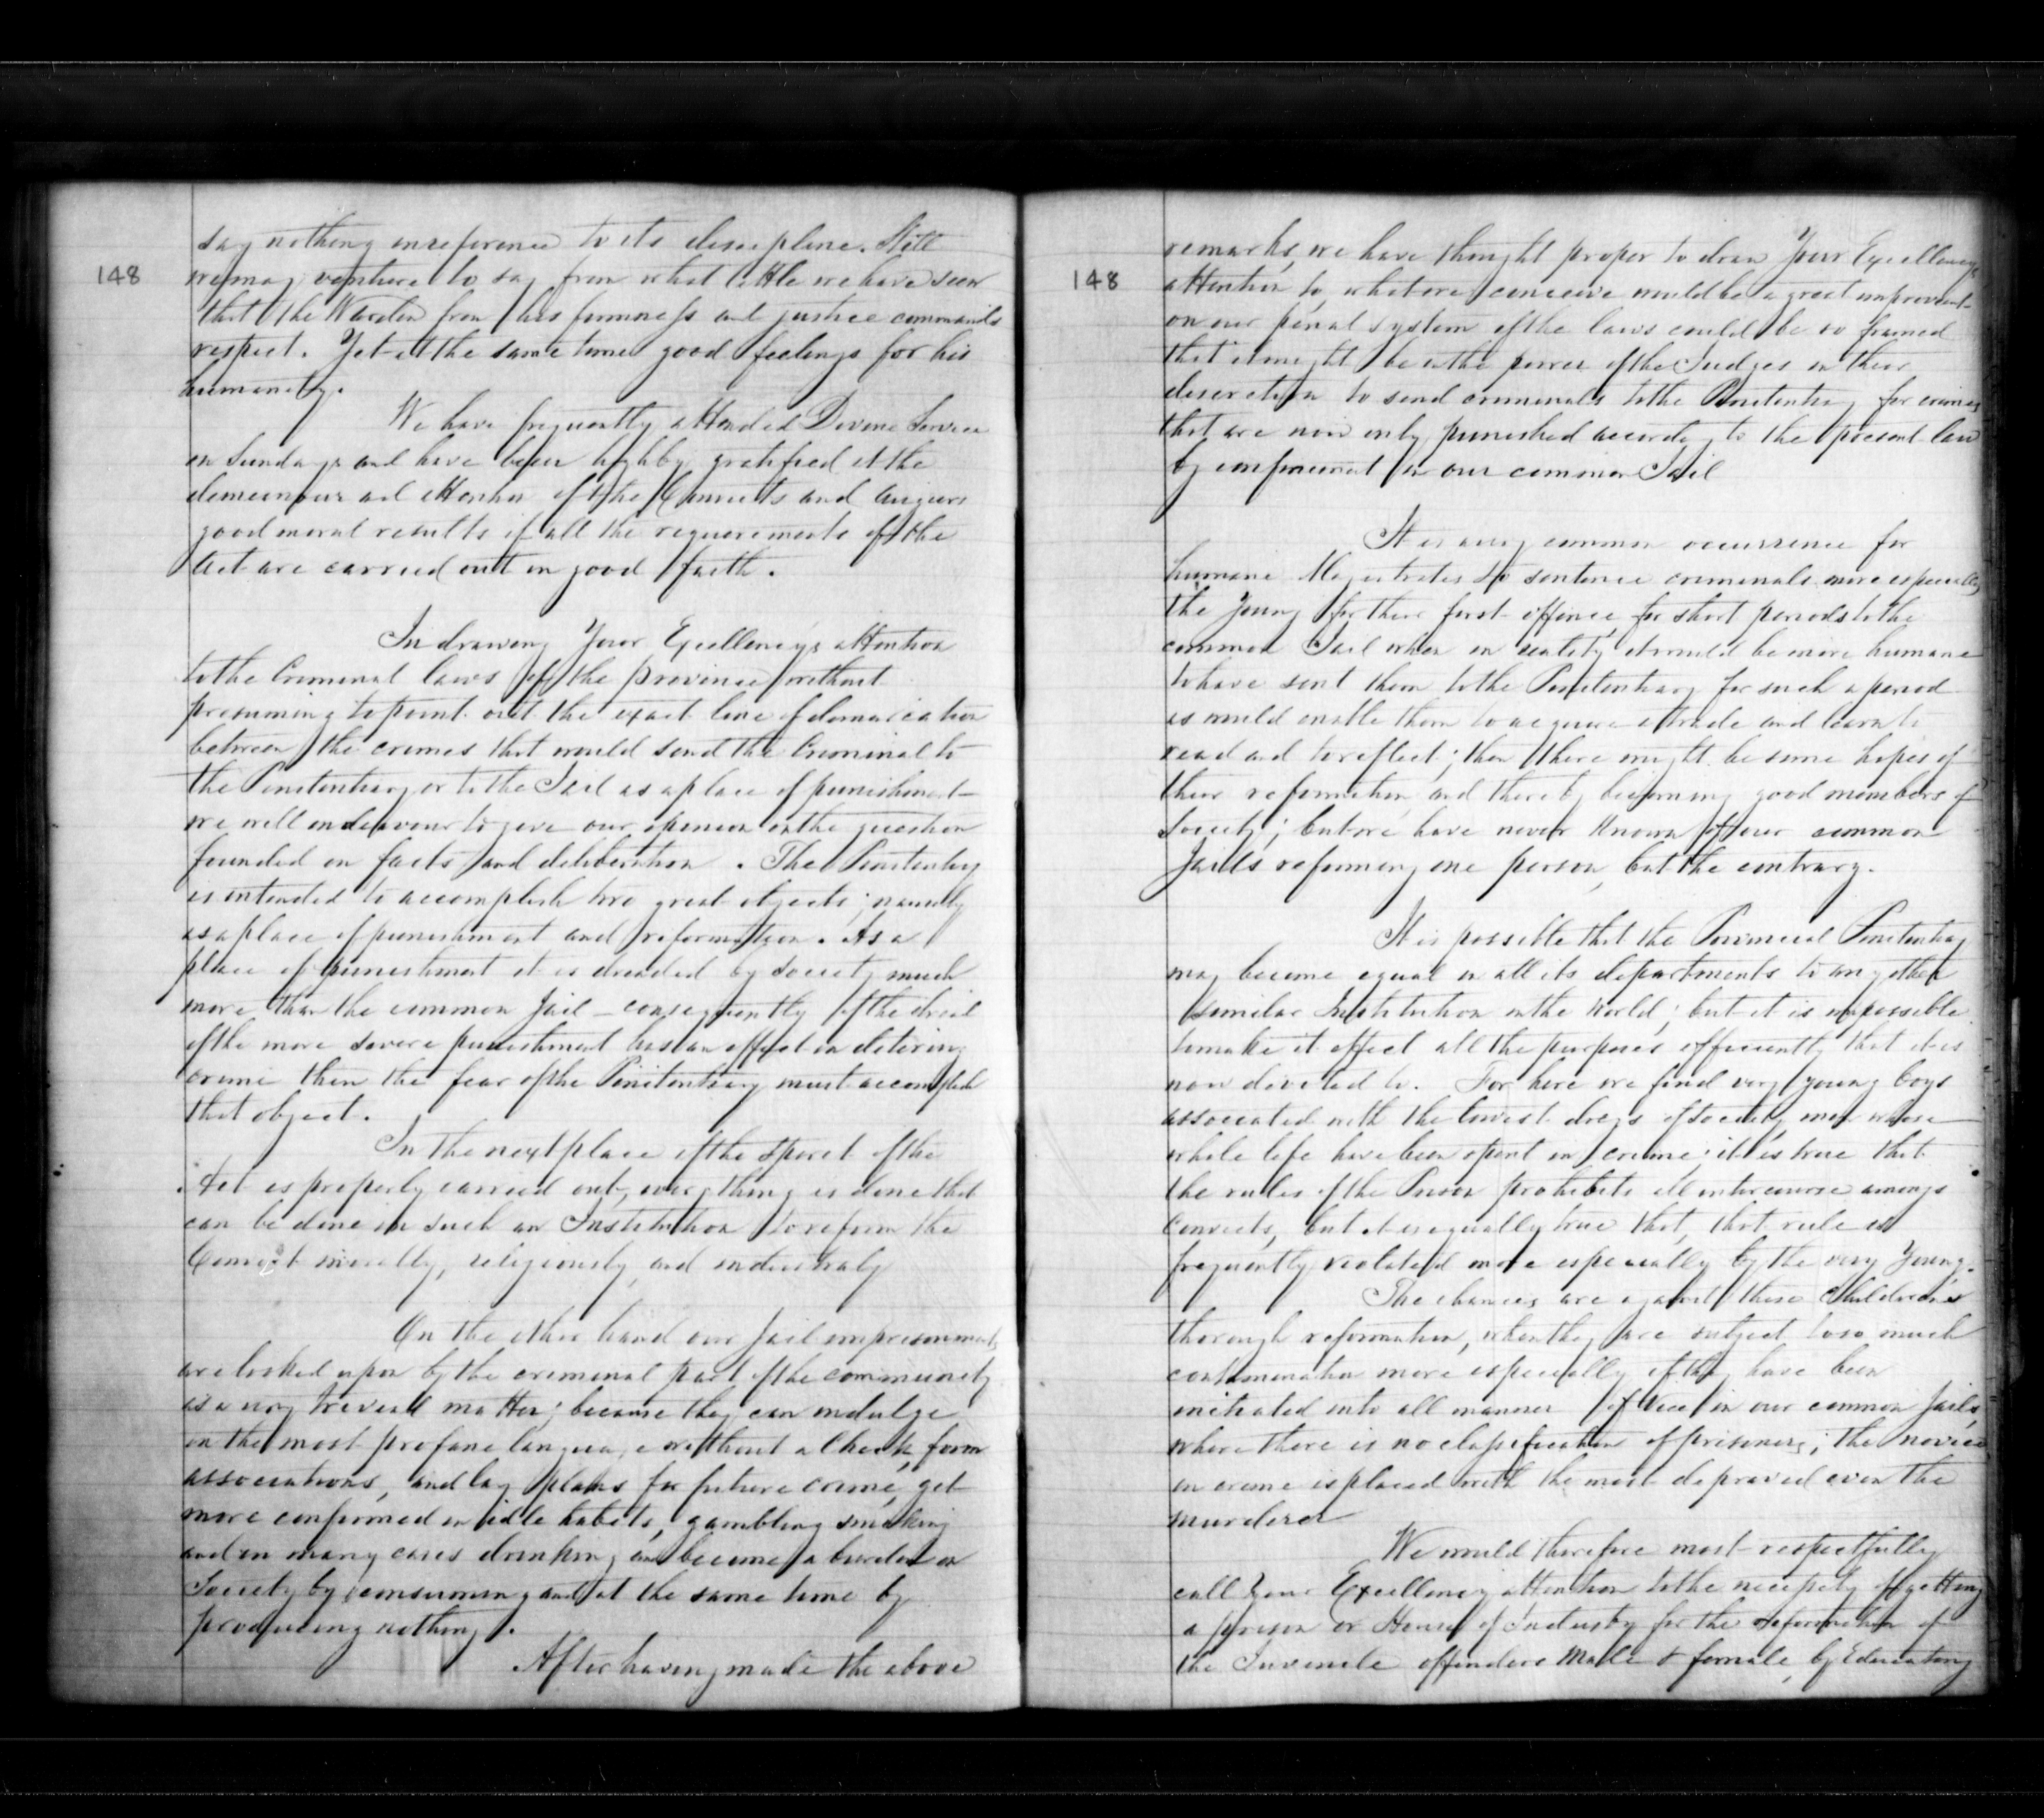 148
say nothing in reference to its discipline. Still
we may venture to say from what little we have seen
that the Warden from his firmness and justice commands
respect. Yet at the same time good feelings for his
humanity.
We have frequently attended Divine Service
on Sundays and have been highly gratified at the
demeanour and attention of the Convicts and augurs
good moral results if all the requirements of the
Act are carried out in good faith.
In drawing Your Excellency's attention
to the Criminal laws of the province without
presuming to point out the exact line of demarcation
between the crimes that would send the Criminal to
the Penitentiary or to the Jail as a place of punishment
we will endeavour to give our opinion on the question
founded on facts and deliberation. The Penitentiary
is intended to accomplish two great objects; namely
as a place of punishment and reformation. As a
place of punishment it is dreaded by society much
more than the common Jail - consequently if the dread
of the more severe punishment has an effect in detering
crime then the fear of the Penitentiary must accomplish
that object.
In the next place if the spirit of the
Act is properly carried out, every thing is done that
can be done in such an Institution to reform the
Convict morally, religiously, and industrialy
On the other hand our Jail imprisonments
are looked upon by the criminal part of the community
as a very triveal matter; because they can indulge
in the most profane language without a check, form
associations, and lay plans for future crime, get
more confirmed in idle habits, gambling smoking
and in many cases drinking and become a burden on
Society by consuming and at the same time by
producing nothing.
After having made the above
148
remarks, we have thought proper to draw Your Excellency's
attention to, what we conceive would be a great improvement
on our penal system if the laws could be so framed
that it might be in the power of the Judges in their
discretion to send criminals to the Penitentiary for crimes
that are now only punished according to the present law
by confinement in our common Jail
It is a very common occurrence for
humane Magistrates to sentence criminals more especially
the young for their first offence, for short periods to the
common Jail when in reality it would be more humane
to have sent them to the Penitentiary for such a period
as would enable them to acquire a trade and learn to
read and to reflect; then there might be some hopes of
their reformation, and thereby becoming good members of
Society; but we have never known of our common
Jails reforming one person, but the contrary.
It is possible that the Provincial Penitentiary
may become equal in all its departments to any other
similar Institution in the World; but it is impossible
to make it effect all the purposes efficiently that it is
now devoted to. For here we find very young boys
associated with the lowest dregs of society, men whose
whole life have been spent in crime; it is true that
the rules of the Prison prohibits all intercourse amongs
Convicts, but it is equally true that, that rule is
frequently violated more especially by the very Young.
The chances are against these Children's
thorough reformation, when they are subject to so much
contamination more especially if they have been
initiated into all manner of vice in our common Jails,
where there is no classification of prisoners; the novice
in crime is placed with the most depraved even the
murderer
We would therefore most respectfully
call Your Excellency attention to the necessity of getting
a prison or House of Industry for the reformation of
the Juvenile offenders Male & female, by Educating